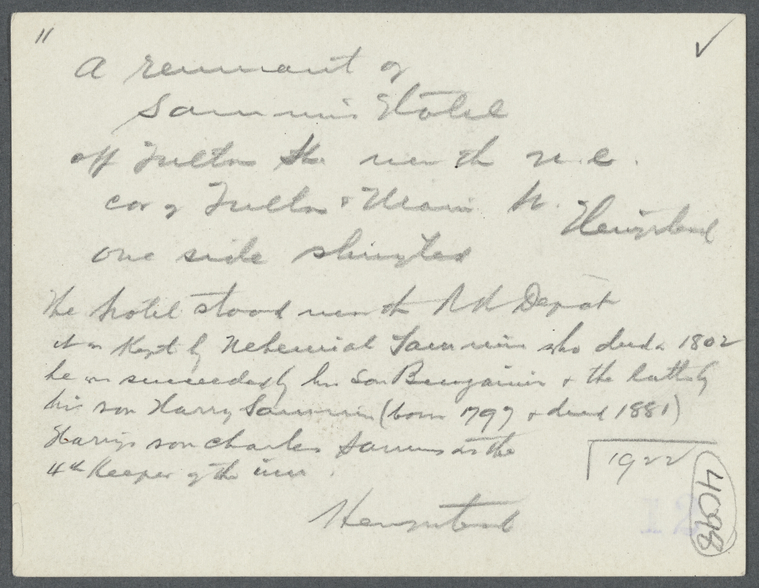 11
A remnant of
Sammis Hotel
off Fulton St. near the n.e.
cor of Fulton & Main St. Hempstead
one side shingled
The hotel stood near the RR Depot
it was Kept by Nehemiah Sammis who died in 1802
he was succeeded by his son Benjamin & the latter by
his son Harry Sammis (born 1797 & died 1881)
Harry's son Charles Sammis was the
4th Keeper of the inn.
1922
Hempstead
4098